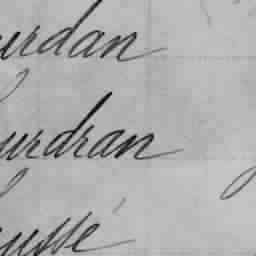 urdan
urdran
ussé